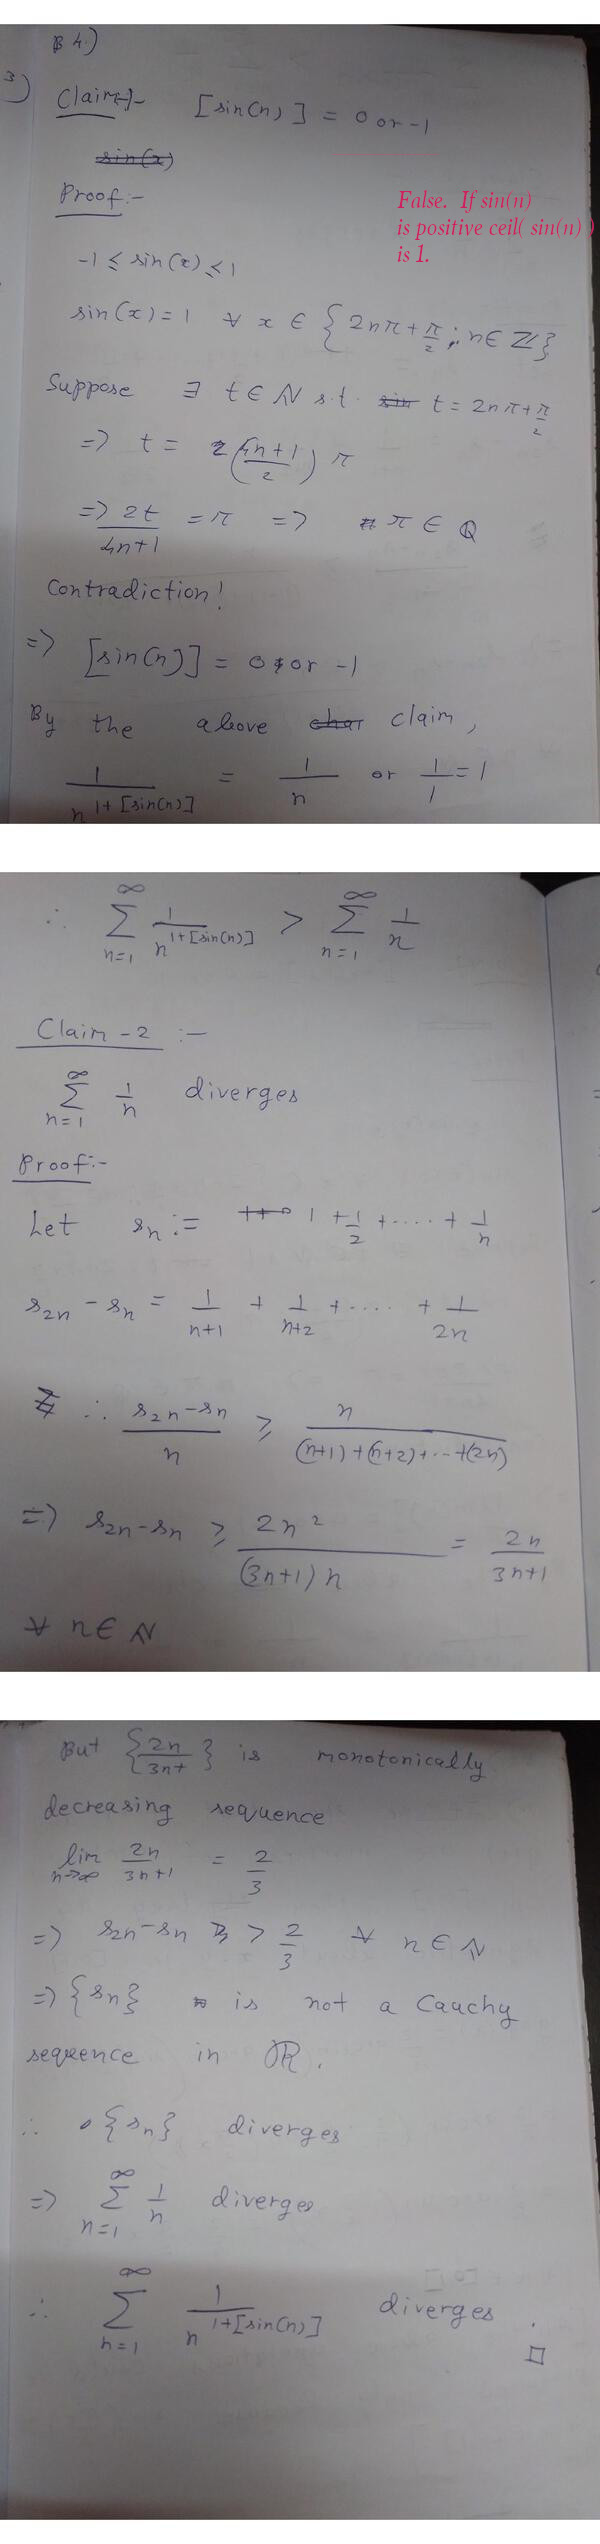 B 4.)
3)
Claim-1- [sin(n)] = 0 or -1
sin(x)
Proof:-
False. If sin(n)
is positive ceil( sin(n) )
is 1.
-1 ≤ sin(x) ≤ 1
sin(x) = 1 ∀ x ∈ {2nπ + π/2 ; n ∈ Z}
Suppose ∃ t ∈ N s.t. sin t = 2nπ + π/2
=> t = ((4n+1)/2) π
=> 2t/(4n+1) = π => π ∈ Q
Contradiction!
=> [sin(n)] = 0 or -1
By the above char claim,
1/n^(1+[sin(n)]) = 1/n or 1/1 = 1
∴ ∑_{n=1}^∞ 1/n^(1+[sin(n)]) > ∑_{n=1}^∞ 1/n
Claim-2 :-
∑_{n=1}^∞ 1/n diverges
Proof:-
Let s_n := 1 + 1/2 + .... + 1/n
s_{2n} - s_n = 1/(n+1) + 1/(n+2) + .... + 1/2n
∴ (s_{2n} - s_n)/n ≥ n/((n+1)+(n+2)+...+(2n))
=> s_{2n} - s_n ≥ 2n²/((3n+1)n) = 2n/(3n+1)
∀ n ∈ N
But {2n/3n+} is monotonically
decreasing sequence
lim_{n→∞} 2n/(3n+1) = 2/3
=> s_{2n} - s_n > 2/3 ∀ n ∈ N
=> {s_n} is not a Cauchy
sequence in R.
∴ {s_n} diverges
=> ∑_{n=1}^∞ 1/n diverges
∴ ∑_{n=1}^∞ 1/n^(1+[sin(n)]) diverges.